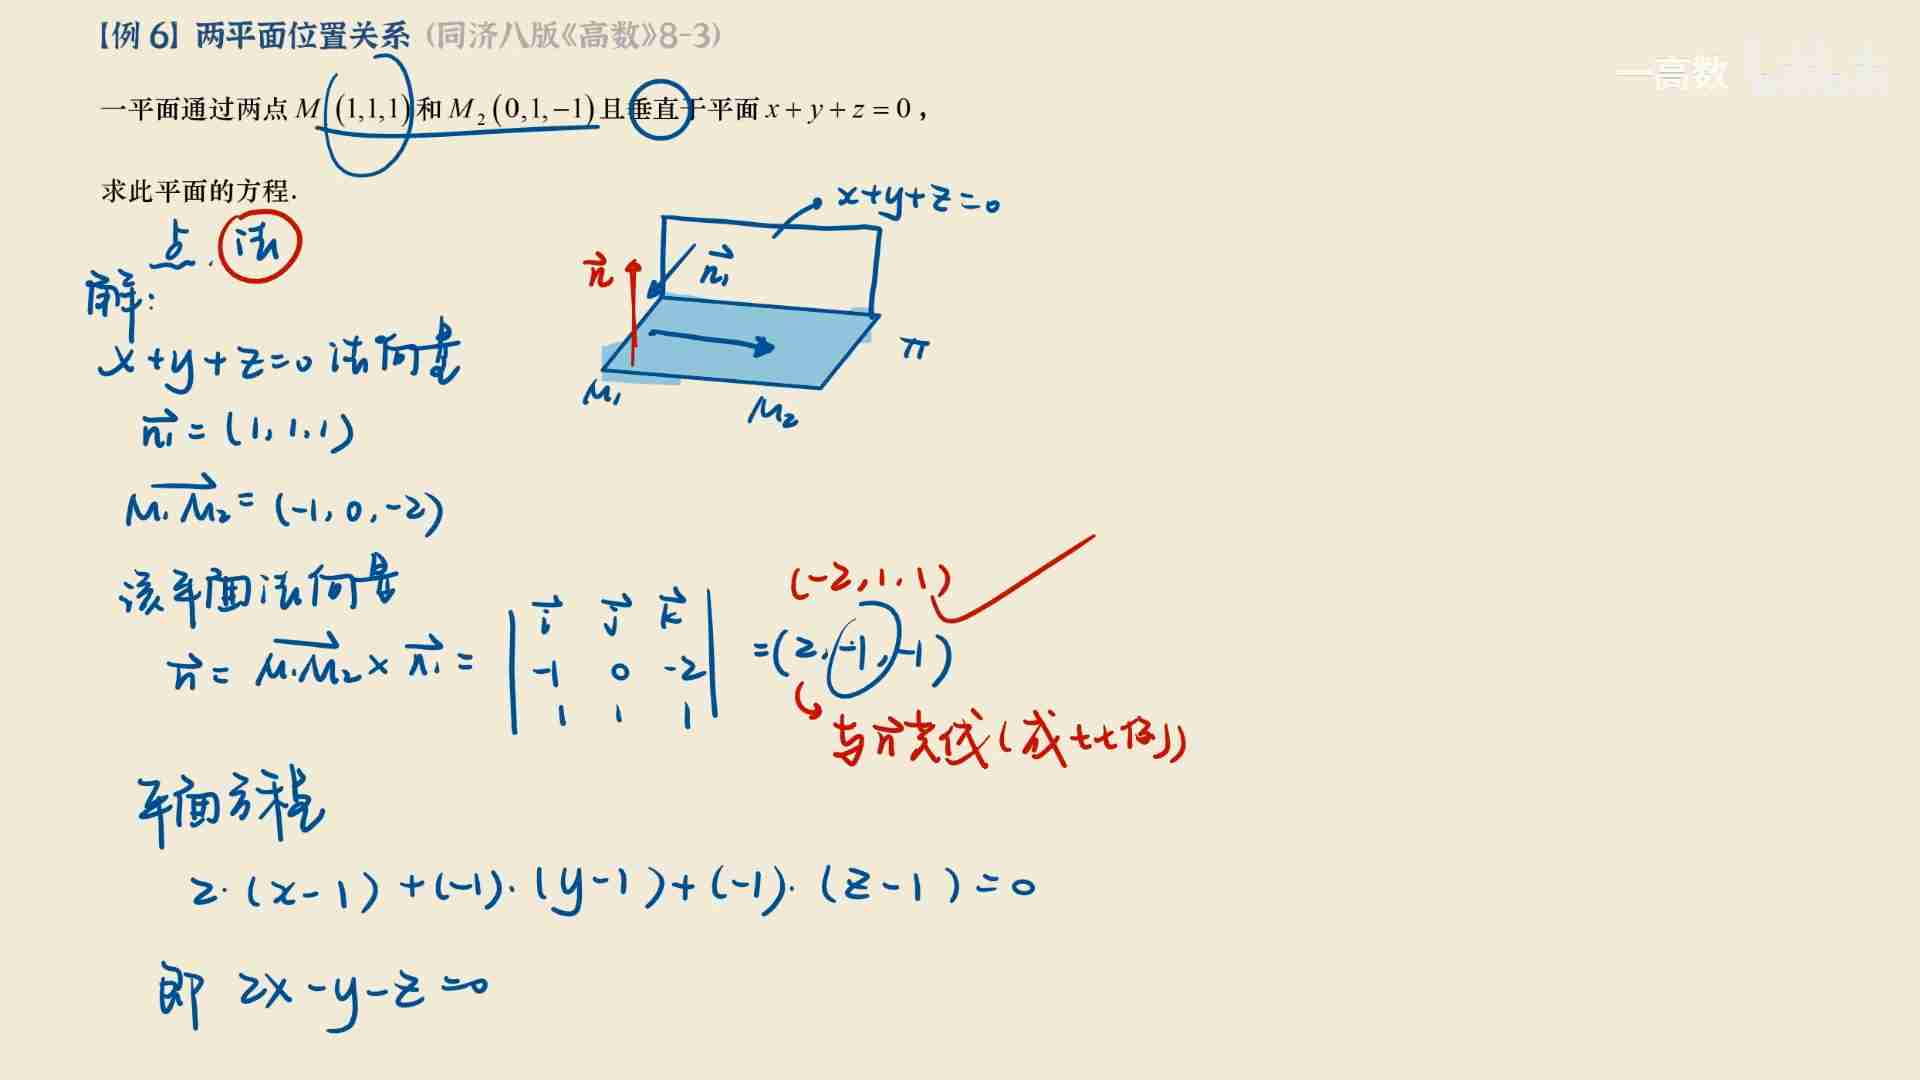 【例 6】两平面位置关系 (同济八版《高数》8-3)
一高数
一平面通过两点 M (1,1,1) 和 M₂ (0,1,−1) 且垂直于平面 x + y + z = 0，
求此平面的方程.
点. 法
解:
x+y+z=0
n⃗
n⃗₁
π
M₁
M₂
x+y+z=0 法向量
n⃗₁ = (1,1,1)
M₁M₂ = (-1,0,-2)
该平面法向量
n⃗ = M₁M₂ × n⃗₁ = | i⃗ j⃗ k⃗ |
-1 0 -2
1 1 1
(-2,1,1)
=(2,-1,-1)
与n⃗共线(成比例)
平面方程
2·(x-1)+(-1)·(y-1)+(-1)·(z-1)=0
即 2x-y-z=0